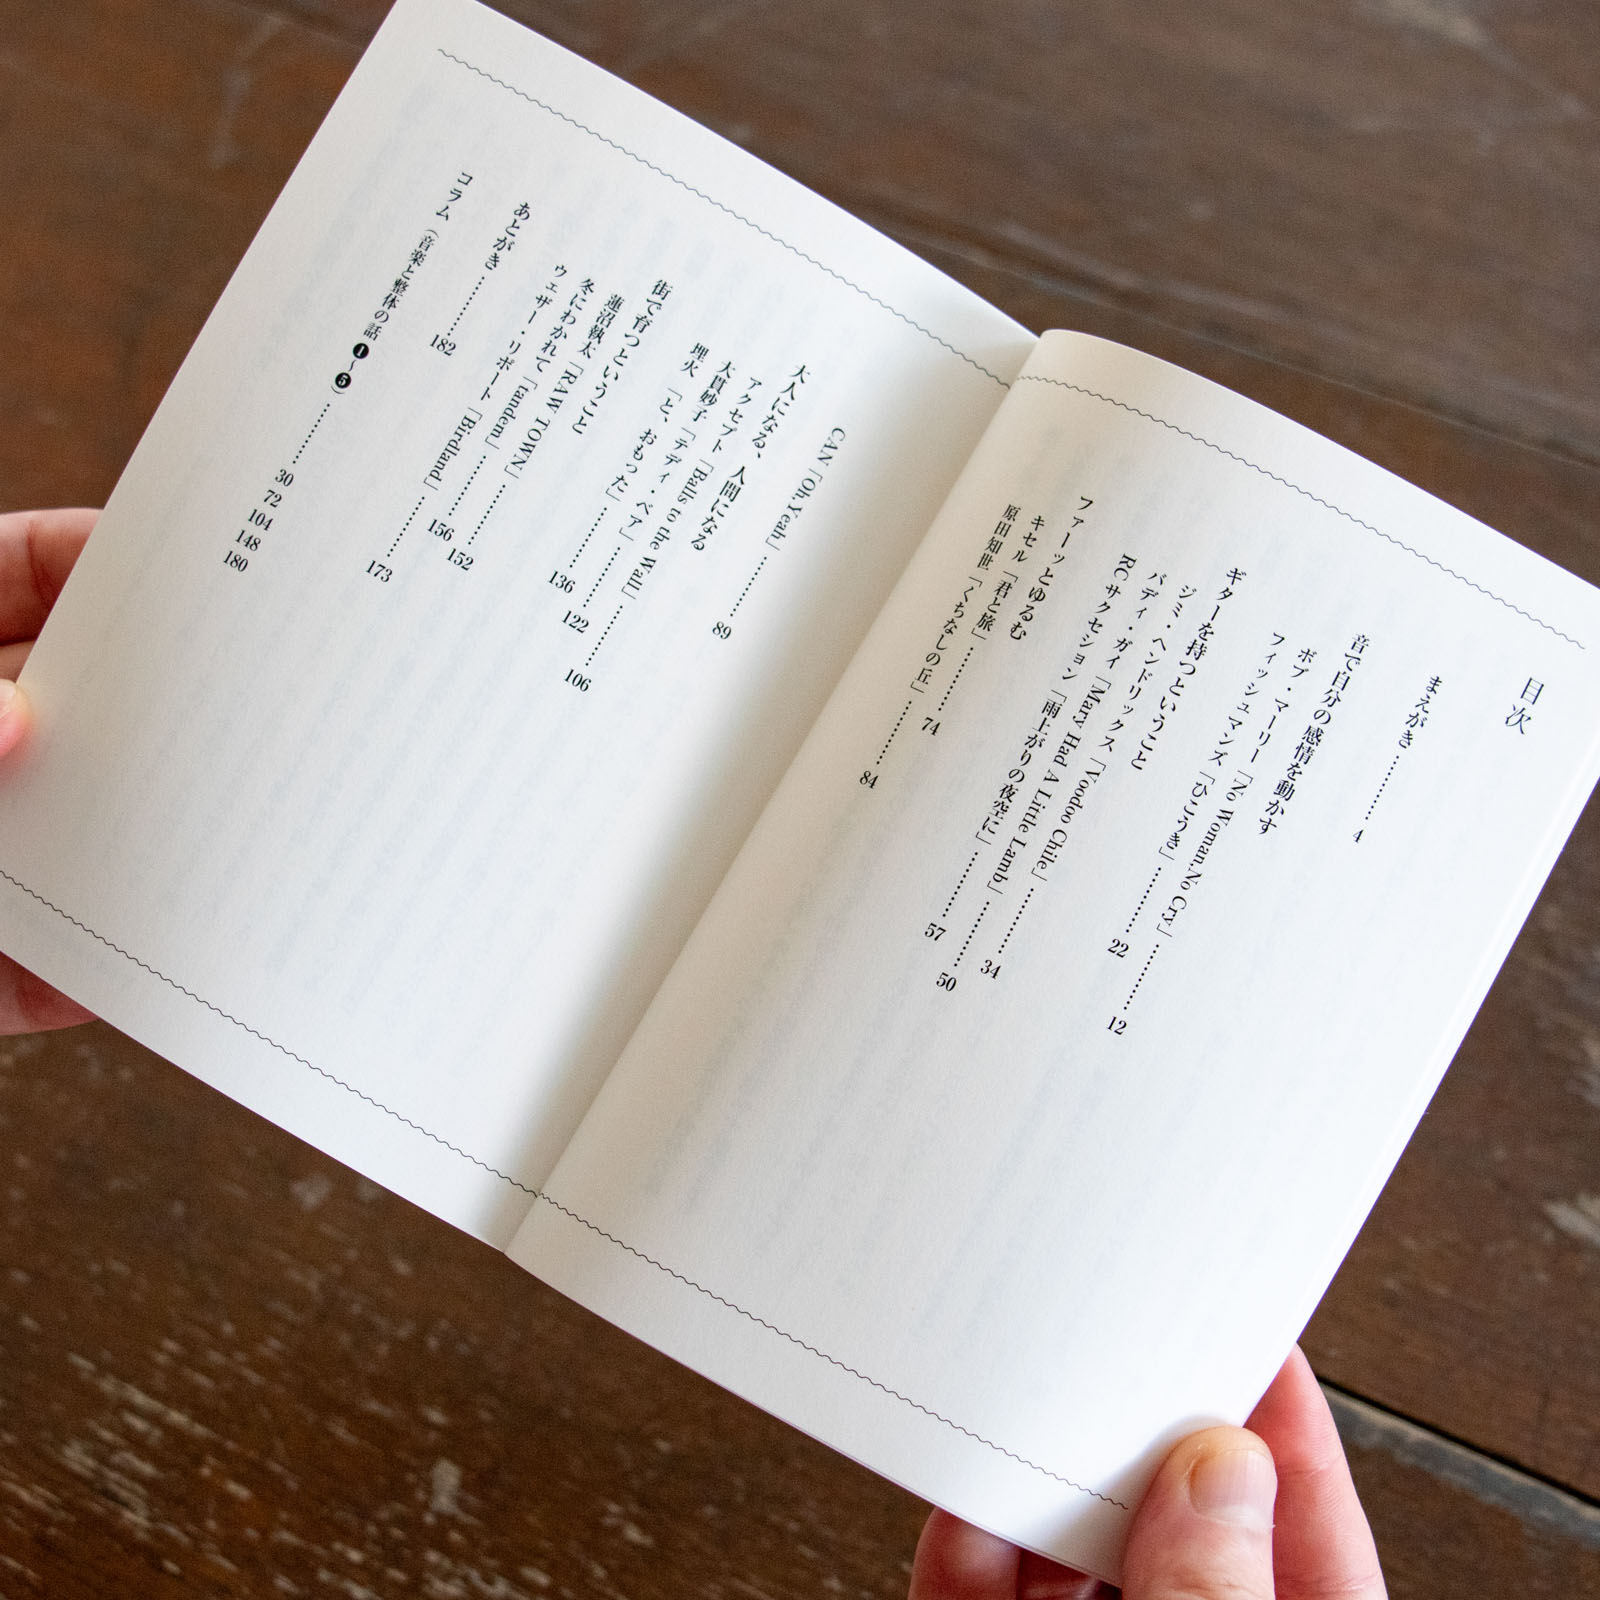 目次
まえがき…………4
音で自分の感情を動かす
ボブ・マーリー「No Woman.No Cry」…………12
フィッシュマンズ「ひこうき」…………22
ギターを持つということ
ジミ・ヘンドリックス「Voodoo Chile」…………34
バディ・ガイ「Mary Had A Little Lamb」…………50
RCサクセション「雨上がりの夜空に」…………57
ファーッとゆるむ
キセル「君と旅」…………74
原田知世「くちなしの丘」…………84
CAN「Oh.Yeah」…………89
大人になる、人間になる
アクセプト「Balls to the Wall」…………106
大貫妙子「テディ・ベア」…………122
埋火「と、おもった」…………136
街で育つということ
蓮沼執太「RAW TOWN」…………152
冬にわかれて「tandem」…………156
ウェザー・リポート「Birdland」…………173
あとがき…………182
コラム（音楽と整体の話❶〜❺）…………30 72 104 148 180